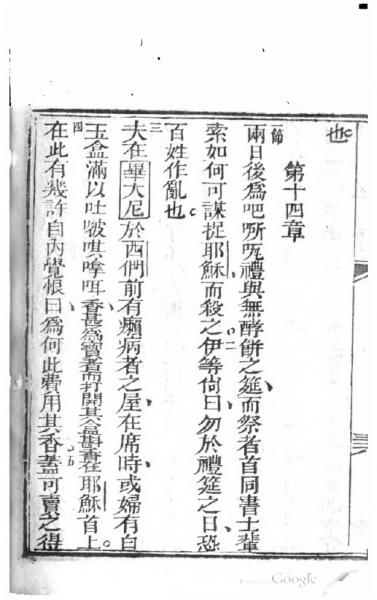 也
第十四章
一節 兩日後爲吧所𠯈禮與無酵餅之筵而祭者首同書士輩
索如何可謀捉耶穌而殺之二伊等尙曰勿於禮筵之日恐
百姓作亂也
三 夫在畢大尼於西們前有癩病者之屋在席時或婦有白
玉盒滿以吐啵唭嗱咡香甚爲寶者而打開其盒斟香在耶穌首上
四 在此有幾許自內覺恨曰爲何此費用其香五蓋可賣之得
Google